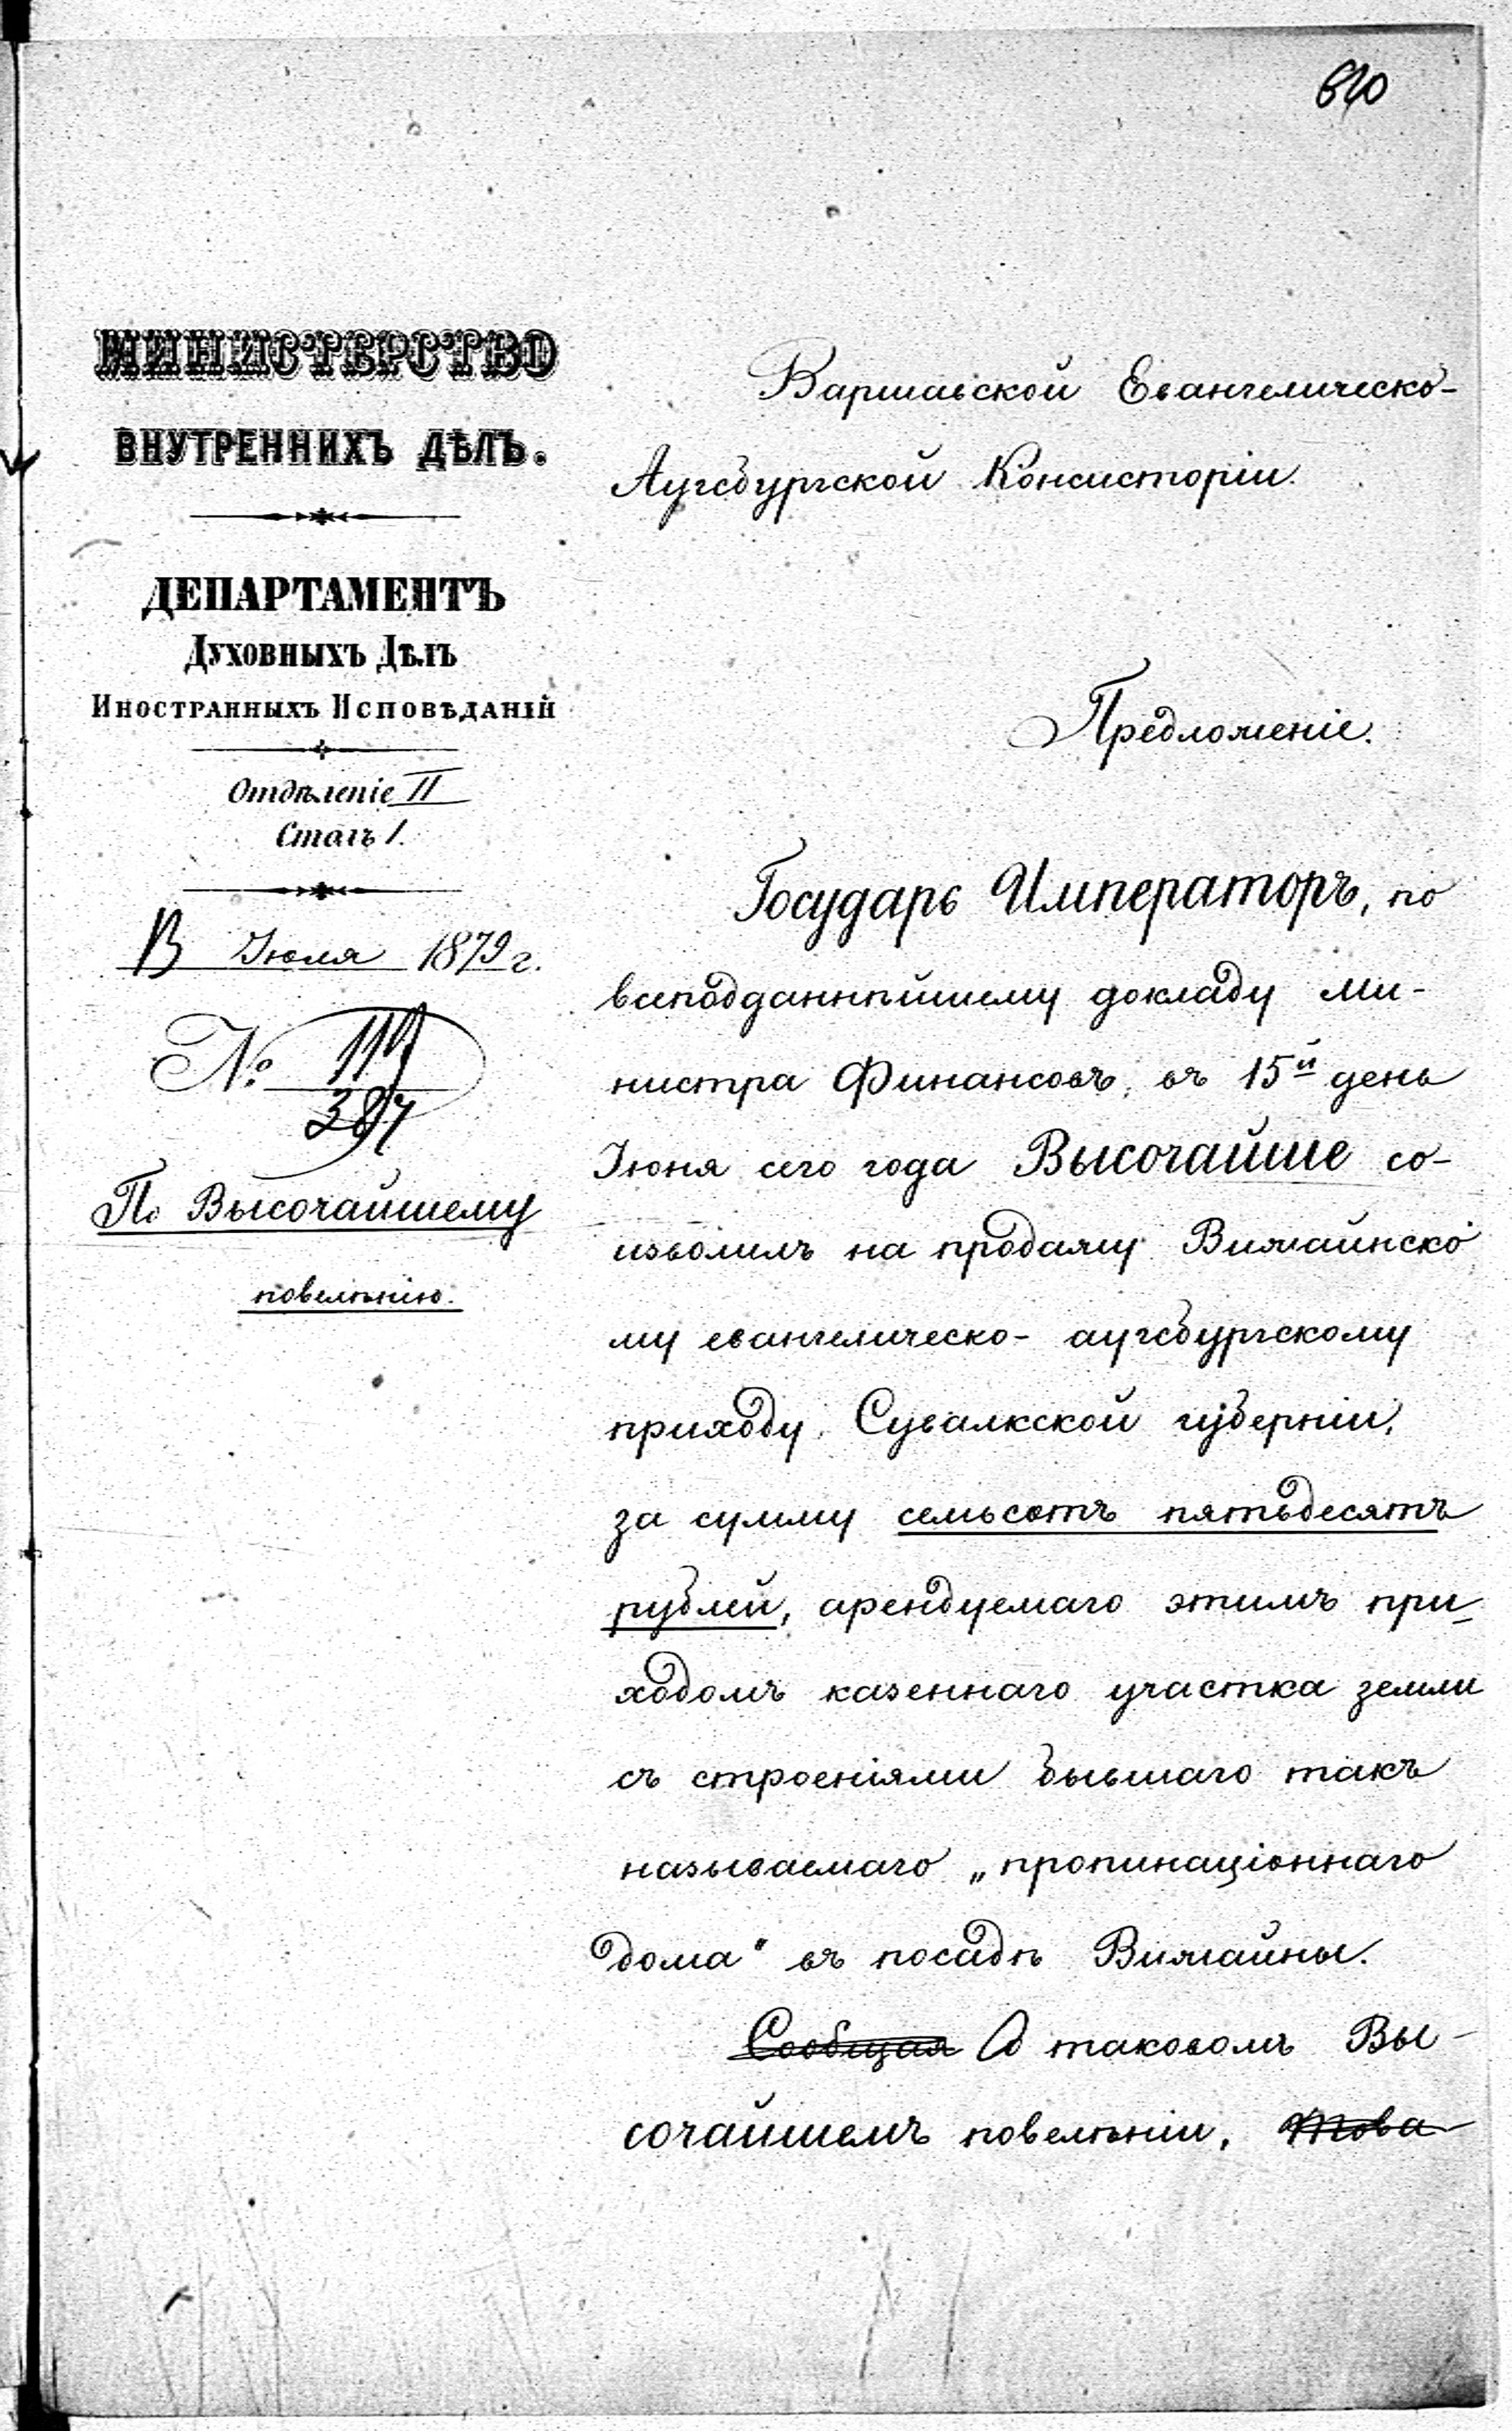 МИНИСТЕРСТВО
ВНУТРЕННИХЪ ДѢЛЪ.
ДЕПАРТАМЕНТЪ
ДУХОВНЫХЪ ДѢЛЪ
ИНОСТРАННЫХЪ ИСПОВѢДАНІЙ
Отдѣленіе II
Столъ 1.
Іюля 1879 г.
№
По Высочайшему
повелѣнію.
Варшавской Евангелическо-
Аугсбургской Консисторіи.
Предложеніе.
Государь Императоръ, по
всеподданнѣйшему докладу ми-
нистра Финансовъ, въ 15й день
Іюня сего года Высочайше со-
изволилъ на продажу Вижайнско
му евангелическо-аугсбургскому
приходу, Сувалкской губерніи,
за сумму семьсотъ пятьдесятъ
рублей, арендуемаго этимъ при-
ходомъ казеннаго участка земли
съ строеніями бывшаго такъ
называемаго „пропинаціоннаго
дома" въ посадѣ Вижайны.
Сообщая О таковомъ Вы-
сочайшемъ повелѣніи,